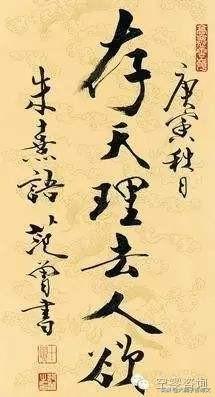 庚寅秋日
存天理去人欲
朱熹語 范曾書